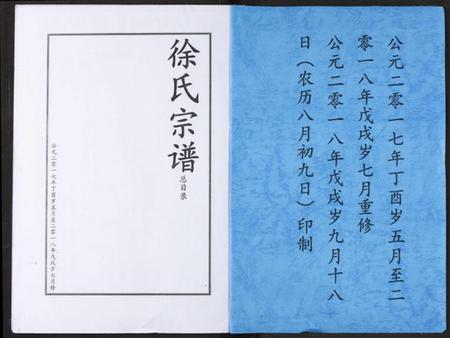 公元二零一七年丁酉岁五月至二
零一八年戊戌岁七月重修
公元二零一八年戊戌岁九月十八
日（农历八月初九日）印制
徐氏宗谱
总目录
公元二零一七年丁酉岁五月至二零一八年戊戌岁七月修